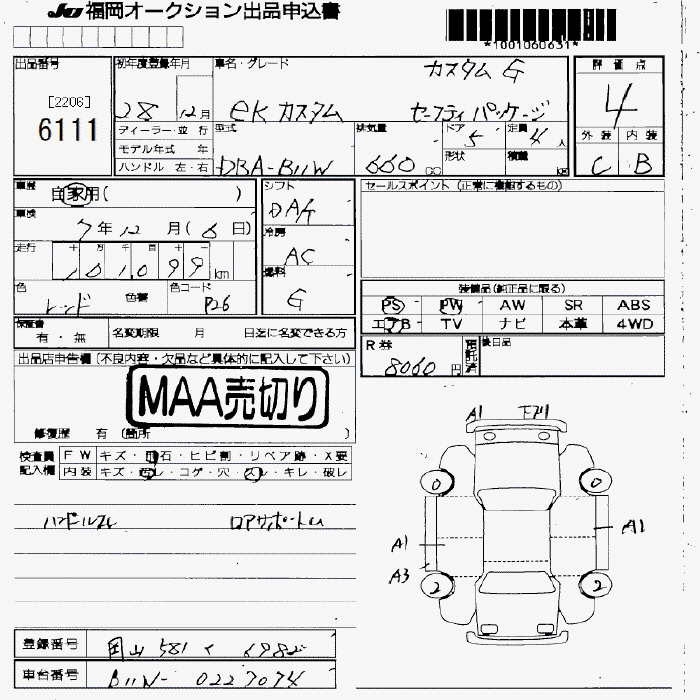 JU 福岡オークション出品申込書
*1001060631*
出品番号 [2206] 6111
初年度登録年月 28 12月
車名・グレード eKカスタム カスタム G セーフティパッケージ
評価点 4
外装 C 内装 B
ディーラー・並行
モデル年式 年
ハンドル 左・右
型式 DBA-B11W
排気量 660 cc
ドア 5
形状
定員 4人
積載 kg
車歴 自家用( )
車検 7年12月(6日)
走行 十 万 千 百 十 一
101099 km
色 レッド 色替 色コード P26
シフト DA/T
冷房 AC
燃料 G
セールスポイント (正常に機能するもの)
装備品(純正品に限る)
PS PW AW SR ABS
エアB TV ナビ 本革 4WD
保証書 有・無 名変期限 月 日迄に名変できる方
R券 8060円 預託済 後日品
出品店申告欄(不良内容・欠品など具体的に記入して下さい)
MAA売切り
修復歴 有 (箇所 )
検査員 FW キズ・飛石・ヒビ割・リペア跡・X要
記入欄 内装 キズ・ ・コゲ・穴・ ・キレ・破レ
ハンドルスレ ロアサポート
A1 下
0 0
A1 A1
A3
2 2
登録番号 岡山 581 6982
車台番号 B11W-0227074